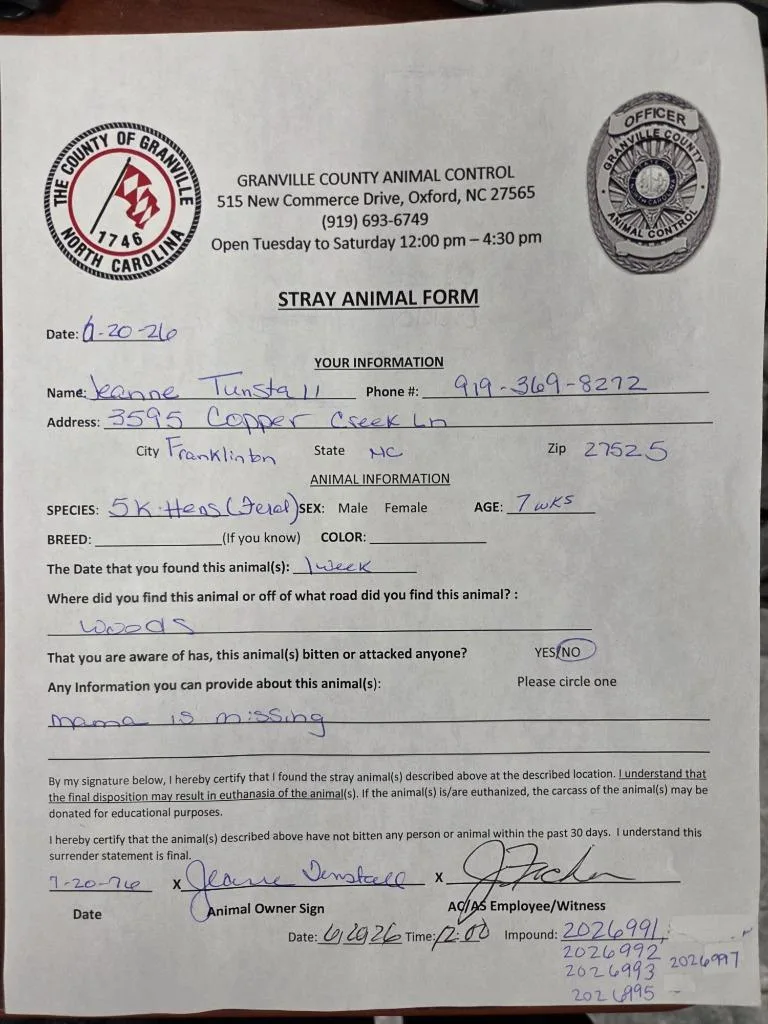 THE COUNTY OF GRANVILLE
1746
NORTH CAROLINA
OFFICER
GRANVILLE COUNTY
ANIMAL CONTROL
GRANVILLE COUNTY ANIMAL CONTROL
515 New Commerce Drive, Oxford, NC 27565
(919) 693-6749
Open Tuesday to Saturday 12:00 pm – 4:30 pm
STRAY ANIMAL FORM
Date: 6-20-26
YOUR INFORMATION
Name: Jeanne Tunstall Phone #: 919-369-8272
Address: 3595 Copper Creek Ln
City Franklinton State NC Zip 27525
ANIMAL INFORMATION
SPECIES: 5 Kittens (Feral) SEX: Male Female AGE: 7 wks
BREED: (If you know) COLOR:
The Date that you found this animal(s): 1 week
Where did you find this animal or off of what road did you find this animal? :
woods
That you are aware of has, this animal(s) bitten or attacked anyone? YES/NO
Any Information you can provide about this animal(s): Please circle one
mama is missing
By my signature below, I hereby certify that I found the stray animal(s) described above at the described location. I understand that
the final disposition may result in euthanasia of the animal(s). If the animal(s) is/are euthanized, the carcass of the animal(s) may be
donated for educational purposes.
I hereby certify that the animal(s) described above have not bitten any person or animal within the past 30 days. I understand this
surrender statement is final.
7-20-26 X Jeanne Tunstall X
Date Animal Owner Sign AC/AS Employee/Witness
Date: 6/20/26 Time: 12:00 Impound: 2026991,
2026992
2026993 2026997
2026995